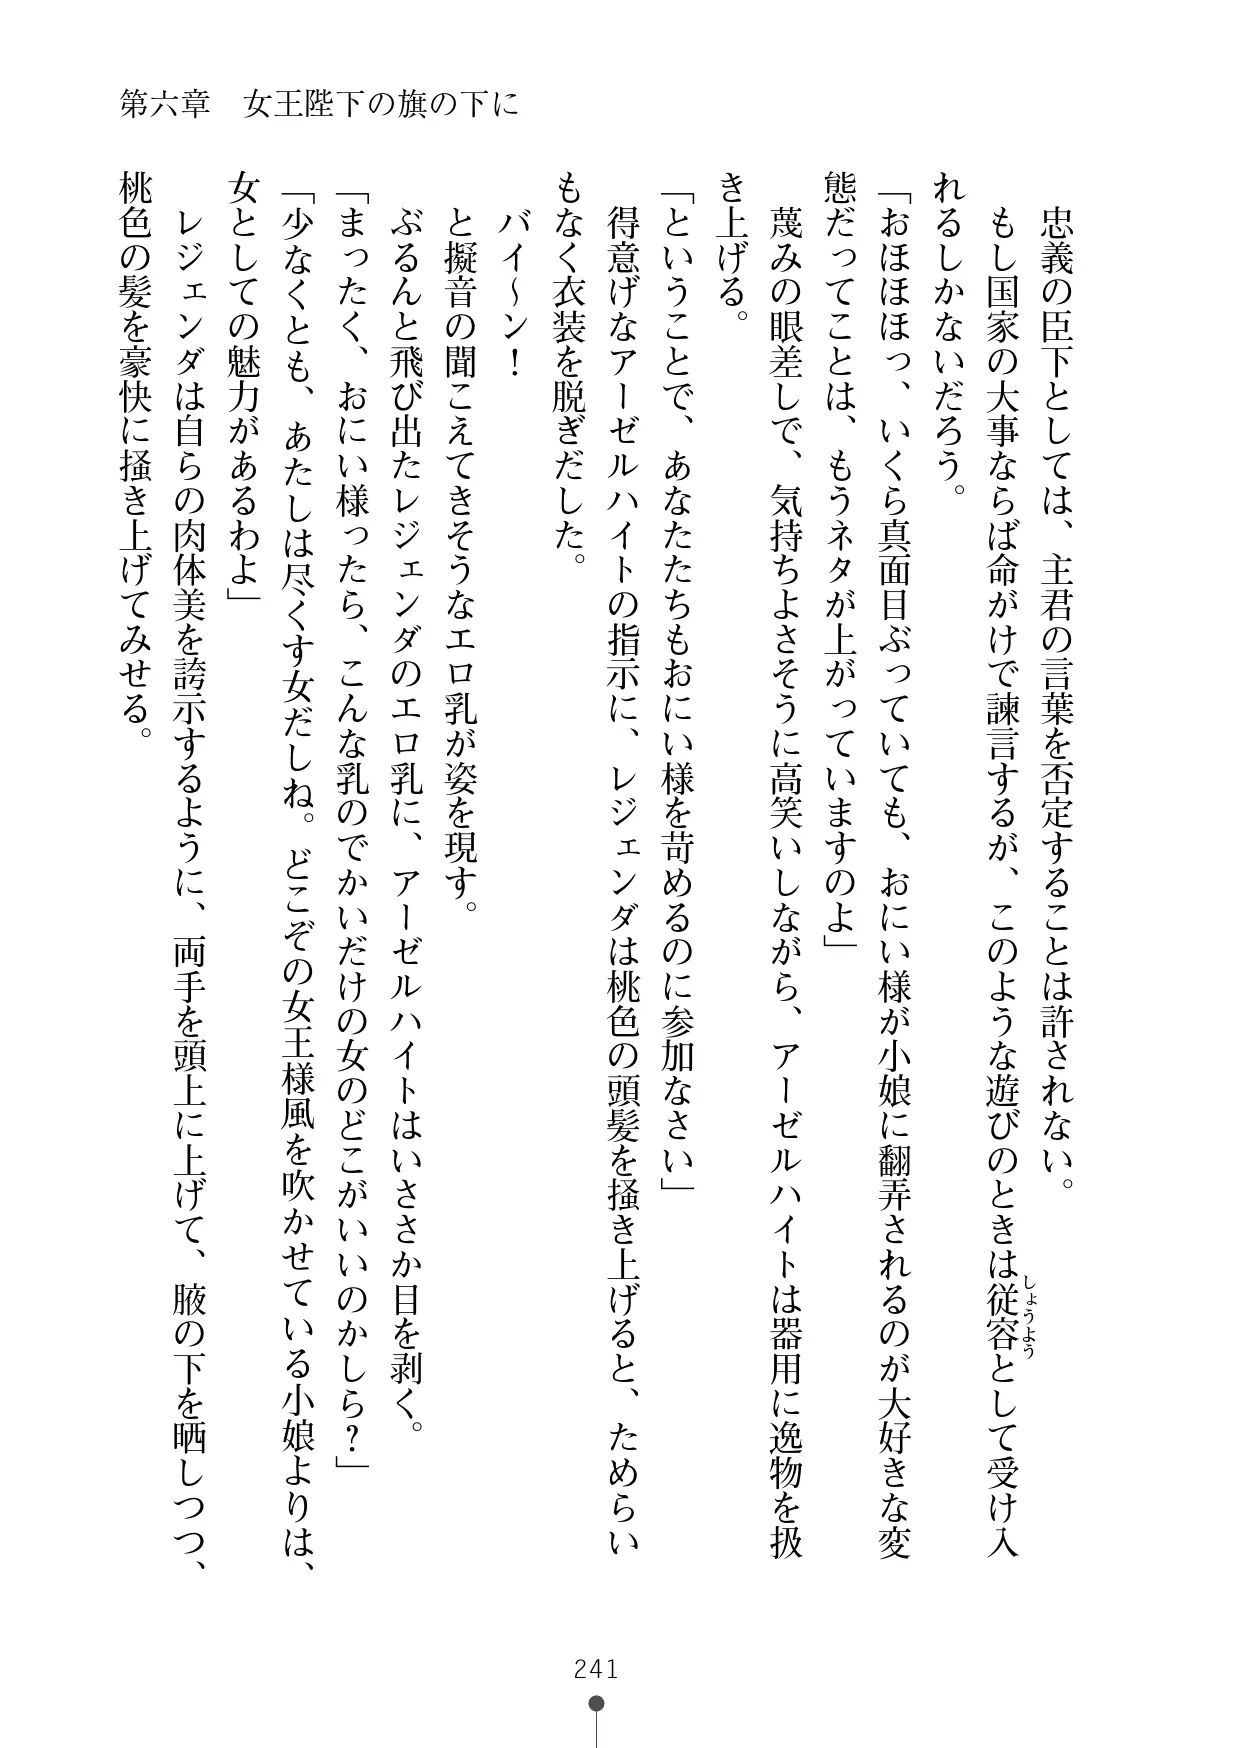 第六章　女王陛下の旗の下に
忠義の臣下としては、主君の言葉を否定することは許されない。
もし国家の大事ならば命がけで諫言するが、このような遊びのときは従容として受け入
しょうよう
れるしかないだろう。
「おほほほっ、いくら真面目ぶっていても、おにい様が小娘に翻弄されるのが大好きな変
態だってことは、もうネタが上がっていますのよ」
蔑みの眼差しで、気持ちよさそうに高笑いしながら、アーゼルハイトは器用に逸物を扱
き上げる。
「ということで、あなたたちもおにい様を苛めるのに参加なさい」
得意げなアーゼルハイトの指示に、レジェンダは桃色の頭髪を掻き上げると、ためらい
もなく衣装を脱ぎだした。
バイ～ン！
と擬音の聞こえてきそうなエロ乳が姿を現す。
ぶるんと飛び出たレジェンダのエロ乳に、アーゼルハイトはいささか目を剥く。
「まったく、おにい様ったら、こんな乳のでかいだけの女のどこがいいのかしら？」
「少なくとも、あたしは尽くす女だしね。どこぞの女王様風を吹かせている小娘よりは、
女としての魅力があるわよ」
レジェンダは自らの肉体美を誇示するように、両手を頭上に上げて、腋の下を晒しつつ、
桃色の髪を豪快に掻き上げてみせる。
241